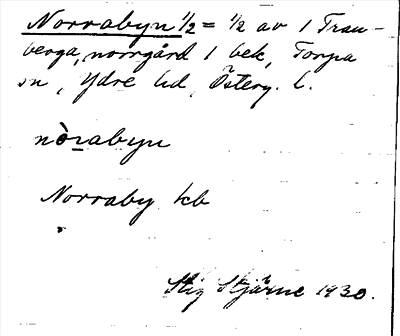 Norrabyn 1/2 = 1/2 av 1 Tran-
berga, norrgård 1 bek, Torpa
sn, Ydre hd, Österg. l.
nòrabyn
Norraby kb
Stig Stjärne 1930.